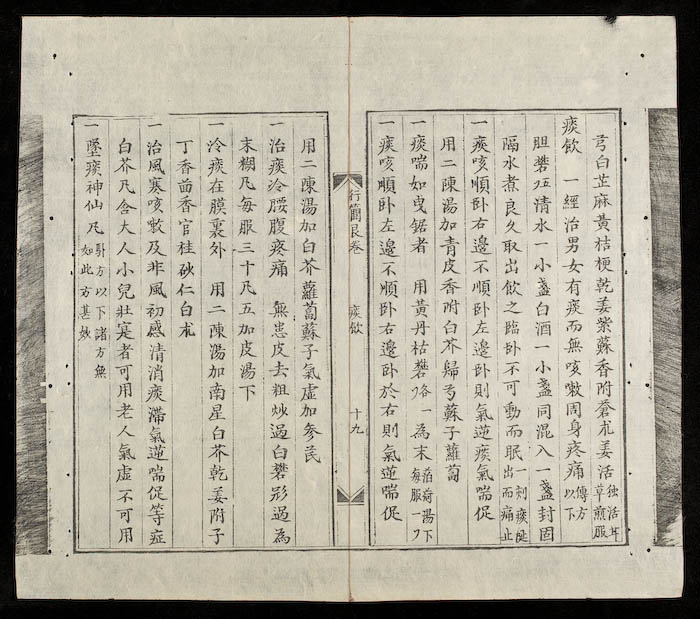 芎白芷麻黃桔梗乾姜紫蘇香附蒼朮羌活獨活甘草煎服
痰飮 一經治男女有痰而無咳嗽周身疼痛傳方以下
膽礬五清水一小盞白酒一小盞同混入一盞封固
隔水煮良久取出飮之臨卧不可動而眠一刻痰䛩出而痛止
一痰咳順卧右邊不順卧左邊卧則氣逆痰氣喘促
用二陳湯加靑皮香附白芥歸芎蘇子蘿蔔
一痰喘如曳鋸者 用黃丹枯礬各一為末薄荷湯下每服一刀
一痰咳順卧左邊不順卧右邊卧於右則氣逆喘促
行簡艮卷 痰飮 十九
用二陳湯加白芥蘿蔔蘇子氣虛加參芪
一治痰冷腰腹疼痛 無患皮去粗炒過白礬過為
末糊凡每服三十凡五加皮湯下
一冷痰在膜裏外 用二陳湯加南星白芥乾姜附子
丁香茴香官桂砂仁白朮
一治風寒咳嗽及非風初感清消痰滯氣逆喘促等症
白芥凡含大人小兒壯寔者可用老人氣虛不可用
一墜痰神仙凡 方以下諸方無如此方甚妙